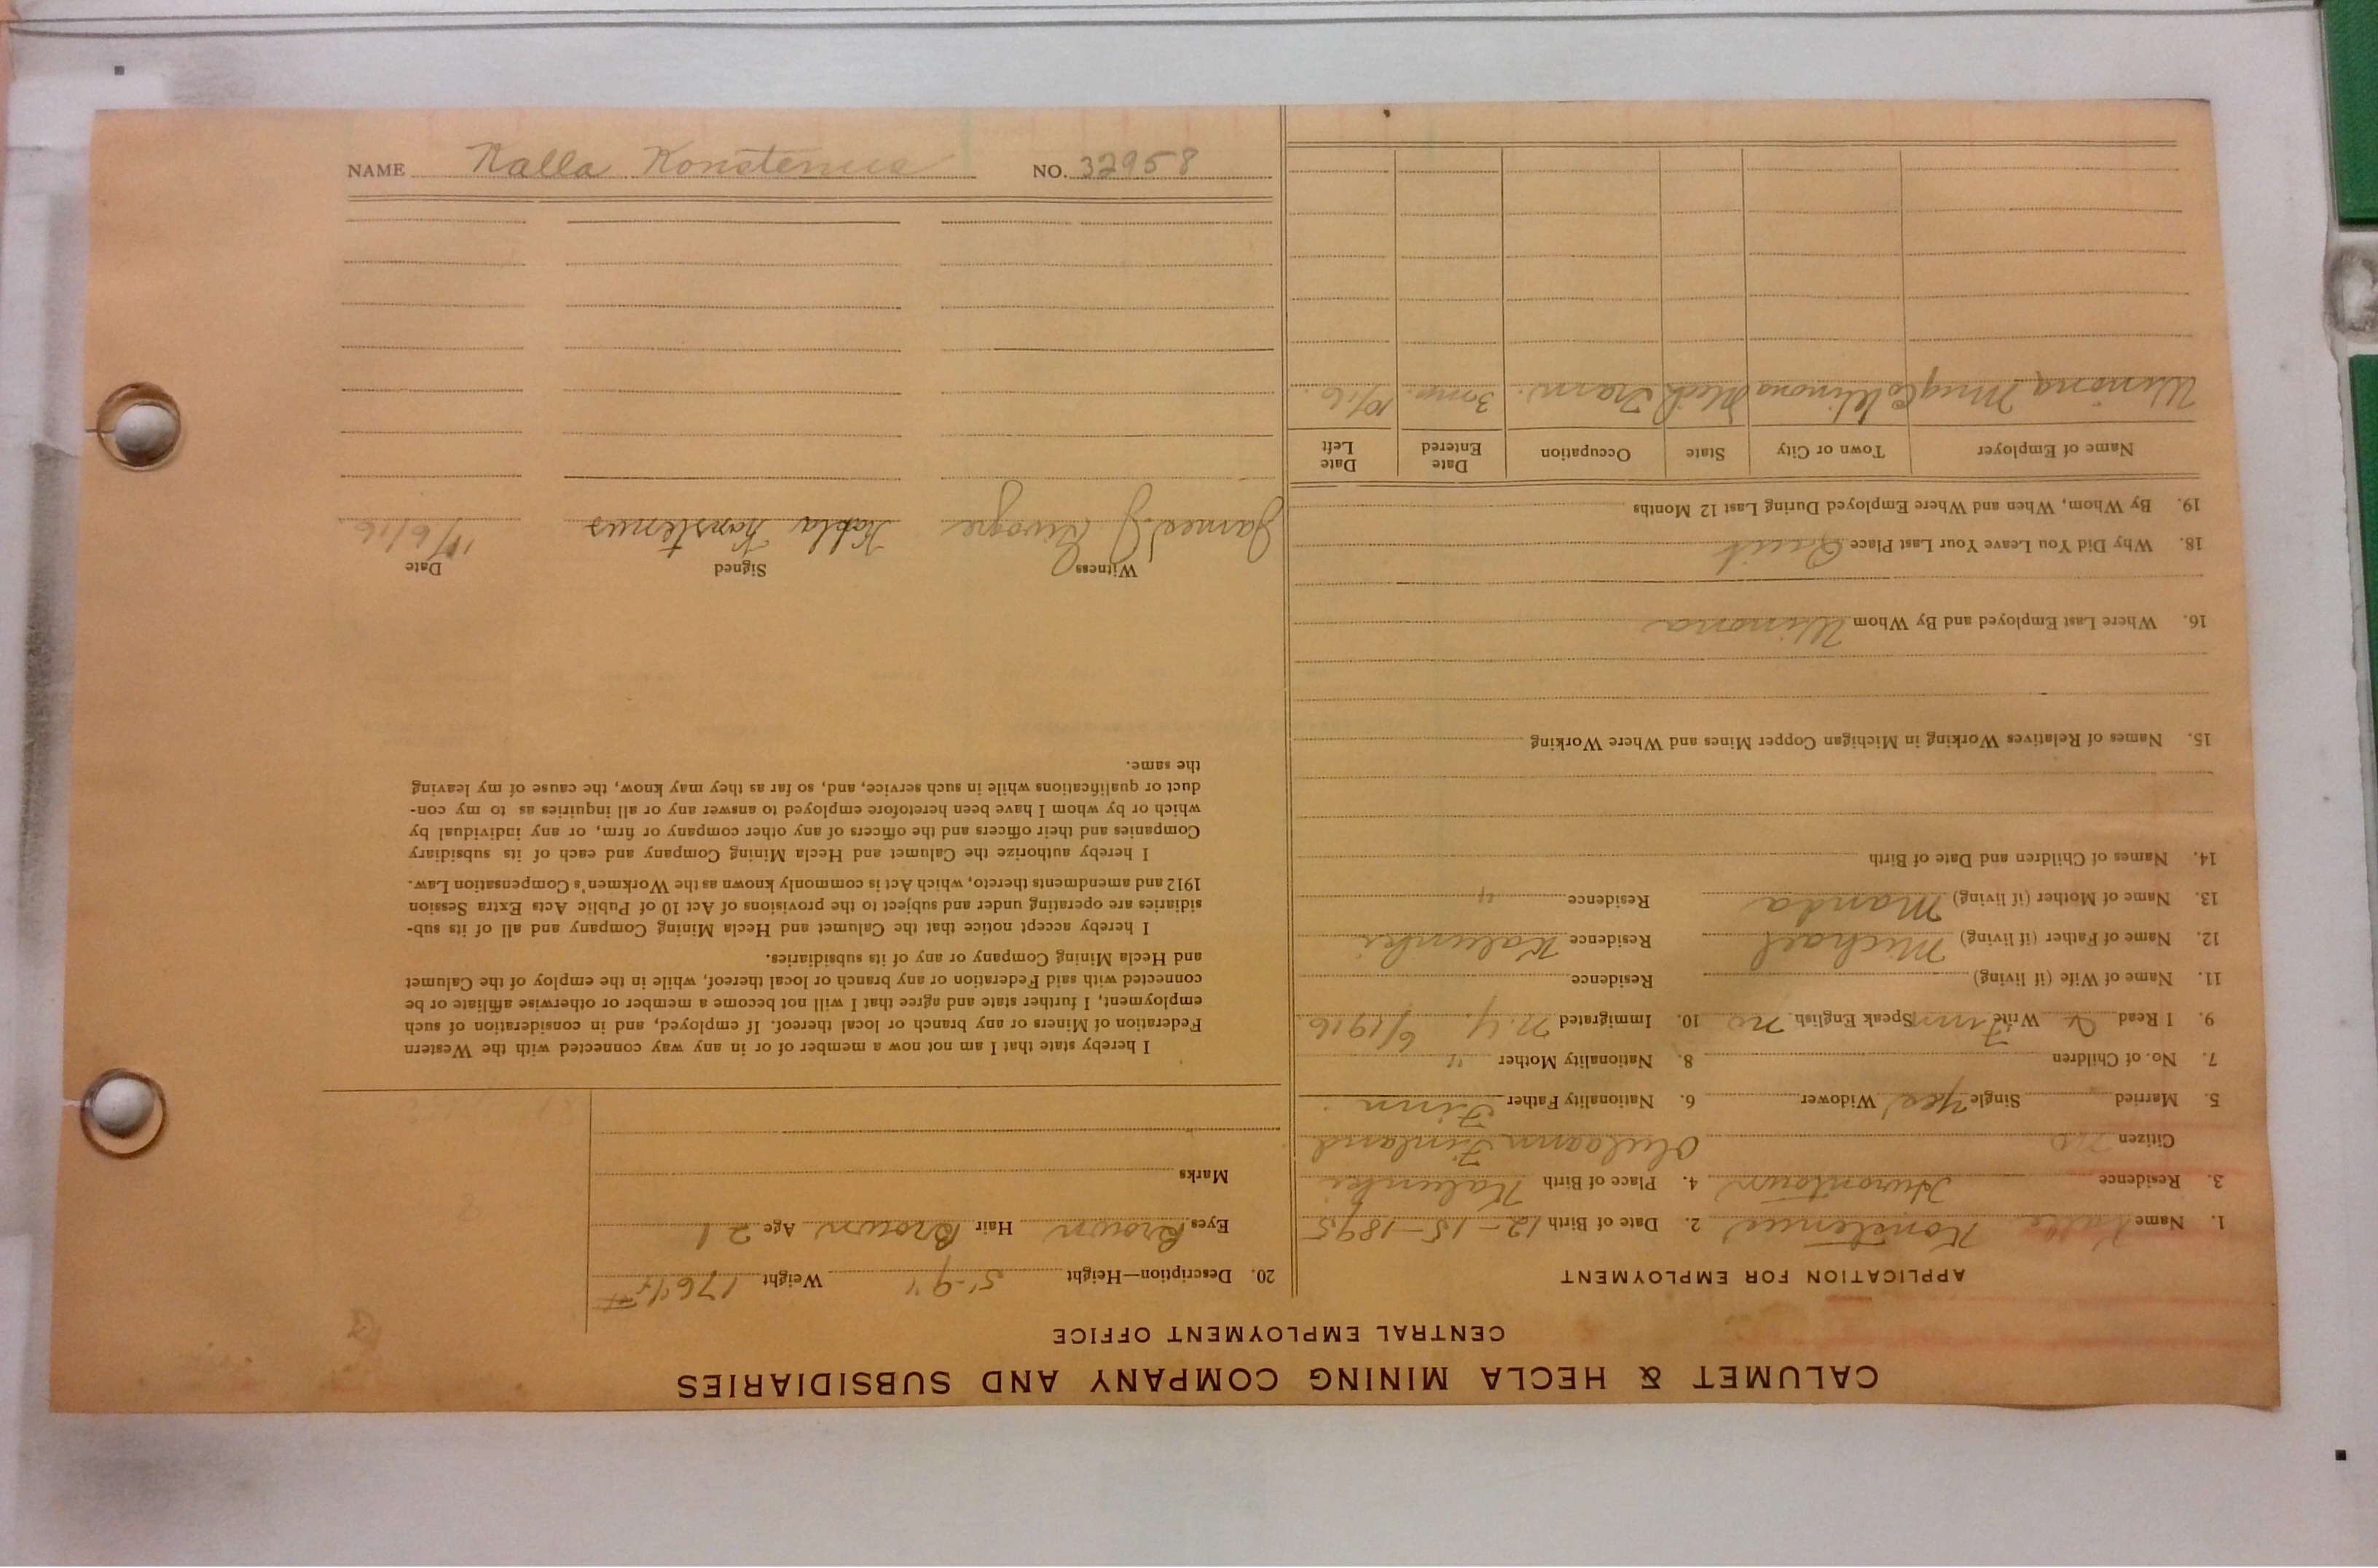 CALUMET & HECLA MINING COMPANY AND SUBSIDIARIES
CENTRAL EMPLOYMENT OFFICE
APPLICATION FOR EMPLOYMENT
1. Name Kalla Konstenus 2. Date of Birth 12-15-1895
3. Residence Hurontown 4. Place of Birth Kalunki
Citizen no Finland
5. Married Single yes Widower 6. Nationality Father Finn
7. No. of Children 8. Nationality Mother "
9. I Read & Write Finn Speak English no 10. Immigrated N.Y. 6/1916
11. Name of Wife (if living) Residence
12. Name of Father (if living) Michael Residence Kalunki
13. Name of Mother (if living) Manda Residence "
14. Names of Children and Date of Birth
15. Names of Relatives Working in Michigan Copper Mines and Where Working
16. Where Last Employed and By Whom Winona
18. Why Did You Leave Your Last Place Quit
19. By Whom, When and Where Employed During Last 12 Months
Name of Employer Town or City State Occupation Date Entered Date Left
Winona Mng Co Winona Mich Tram. 3 mo. 10/16.
20. Description—Height 5-9" Weight 176
Eyes Brown Hair Brown Age 21
Marks
I hereby state that I am not now a member of or in any way connected with the Western
Federation of Miners or any branch or local thereof. If employed, and in consideration of such
employment, I further state and agree that I will not become a member or otherwise affiliate or be
connected with said Federation or any branch or local thereof, while in the employ of the Calumet
and Hecla Mining Company or any of its subsidiaries.
I hereby accept notice that the Calumet and Hecla Mining Company and all of its sub-
sidiaries are operating under and subject to the provisions of Act 10 of Public Acts Extra Session
1912 and amendments thereto, which Act is commonly known as the Workmen's Compensation Law.
I hereby authorize the Calumet and Hecla Mining Company and each of its subsidiary
Companies and their officers and the officers of any other company or firm, or any individual by
which or by whom I have been heretofore employed to answer any or all inquiries as to my con-
duct or qualifications while in such service, and, so far as they may know, the cause of my leaving
the same.
Witness Signed Date
James J. Kalla Konstenus 11/6/16
NAME Kalla Konstenus NO. 32958